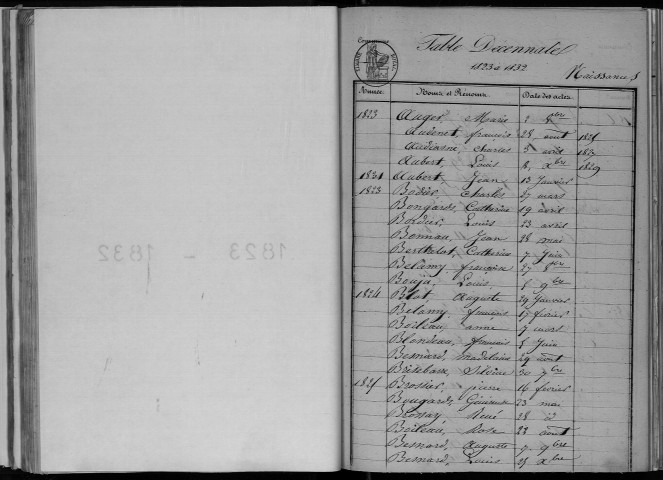 Table Décennale
1823 à 1832
Naissances
TIMBRE ROYAL
Année Noms et Prénoms Date des actes
1823 Auger, Marie 2 8bre
Audenet, françois 28, aout 1825
Audiasne, Charles 5 avril
Aubert, Louis 8, Xbre 1829
1831 Aubert, Jean 13 Janvier
1823 Bodier, Charles 27 mars
Bongards, Catherine 19 avril
Bordier, Louis 23 avril
Bonnau, Jean 28 mai
Berthelot, Catherine 7 Juin
Belamy, françoise 27 8bre
Bouju, Louis 8 9bre
1824 Blot, Auguste 29 Janvier
Belamy, françois 17 février
Boileau, anne 7 mars
Blondeau, françois 8 Juin
Besnard, Madelaine 29 aout
Bretebare, Silvine 30 7bre
1825 Brosier, pierre 16 février
Bougards, 23 mai
René 28 d
Boileau, Rose 22 aout
Besnard, Auguste 7 9bre
Besnard, Louis 25 Xbre
1823 - 1832